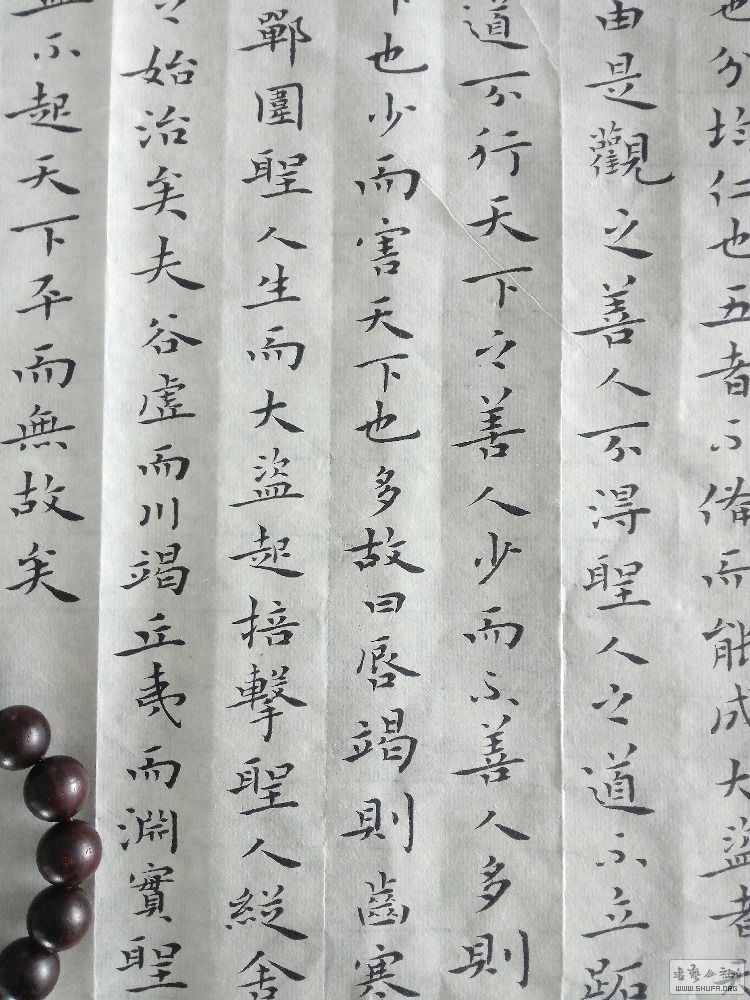 也分均仁也五者不備而能成大盜者
由是觀之善人不得聖人之道不立跖
道不行天下之善人少而不善人多則
下也少而害天下也多故曰唇竭則齒寒
鄲圍聖人生而大盜起掊擊聖人縱舍
之始治矣夫谷虛而川竭丘夷而淵實聖
盜不起天下平而無故矣
WWW.SHUFA.ORG